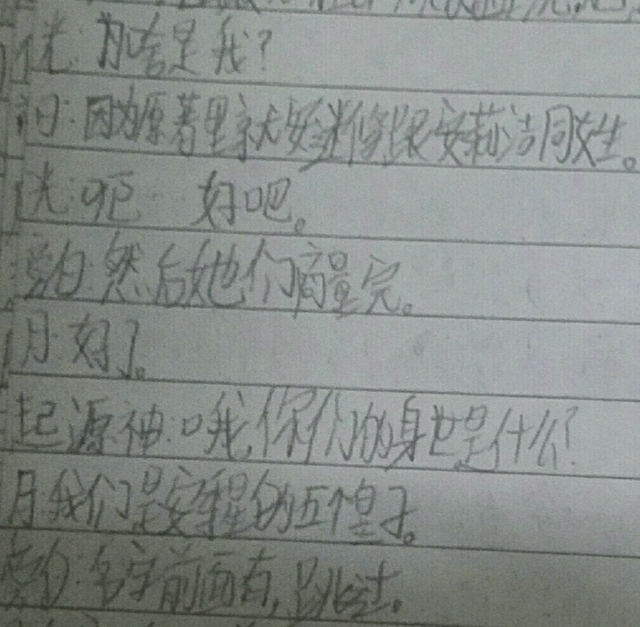 优:为啥是我?
因为原著里就安迷修跟安莉洁同生。
优:呃 好吧。
旁白:然后她们商量完。
月:好了。
起源神:哦,你们的身世是什么?
月:我们是安星的五个皇子。
旁白:名字前面有,跳过。